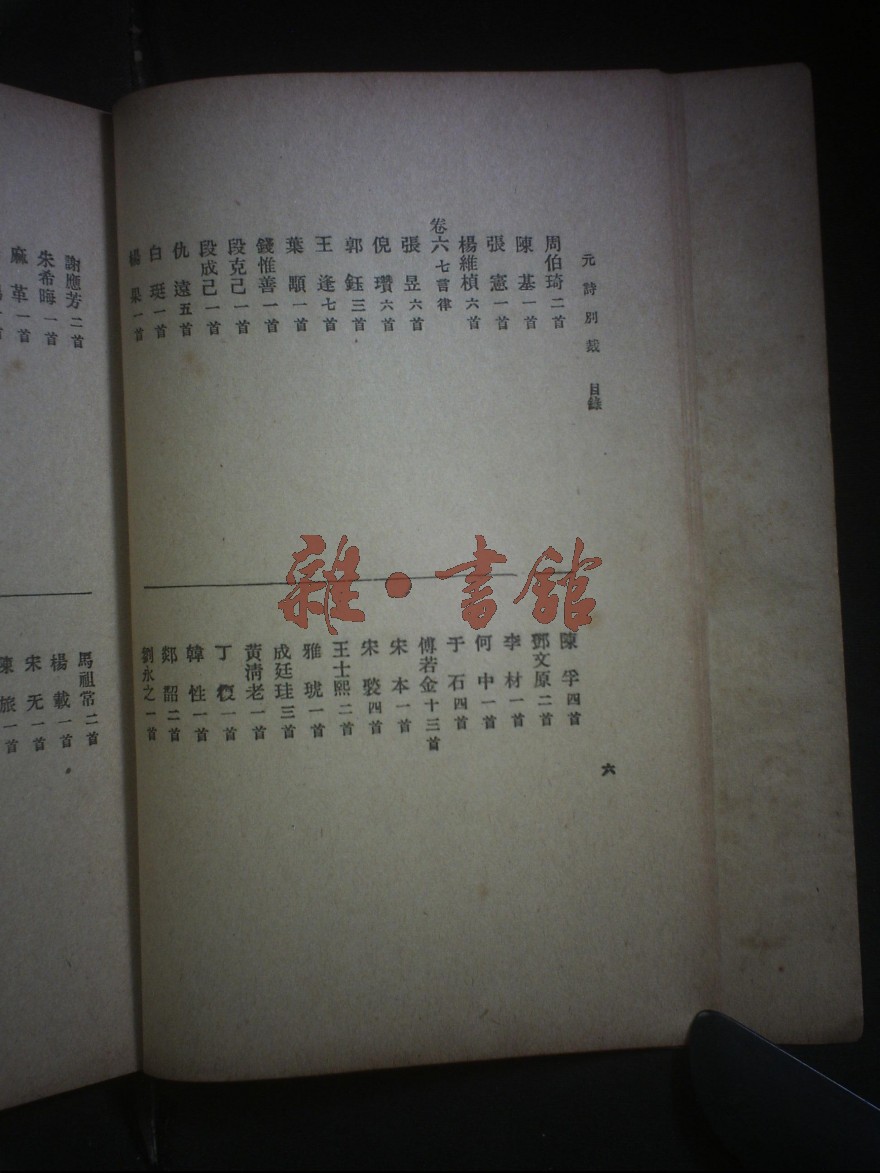 元詩別裁 目錄
周伯琦 二首
陳基 一首
張憲 一首
楊維楨 六首
卷六 七言律
張昱 六首
倪瓚 六首
郭鈺 三首
王逢 七首
葉顒 一首
錢惟善 一首
段克己 一首
段成己 一首
仇遠 五首
白珽 一首
楊果 一首
陳孚 四首
鄧文原 二首
李材 一首
何中 一首
于石 四首
傅若金 十三首
宋本 一首
宋褧 四首
王士熙 二首
雅琥 一首
成廷珪 三首
黃清老 一首
丁復 一首
韓性 一首
郯韶 二首
劉永之 一首
六
謝應芳 二首
朱希晦 一首
麻革 一首
馬祖常 二首
楊載 一首
宋无 一首
陳旅 一首
雜·書館